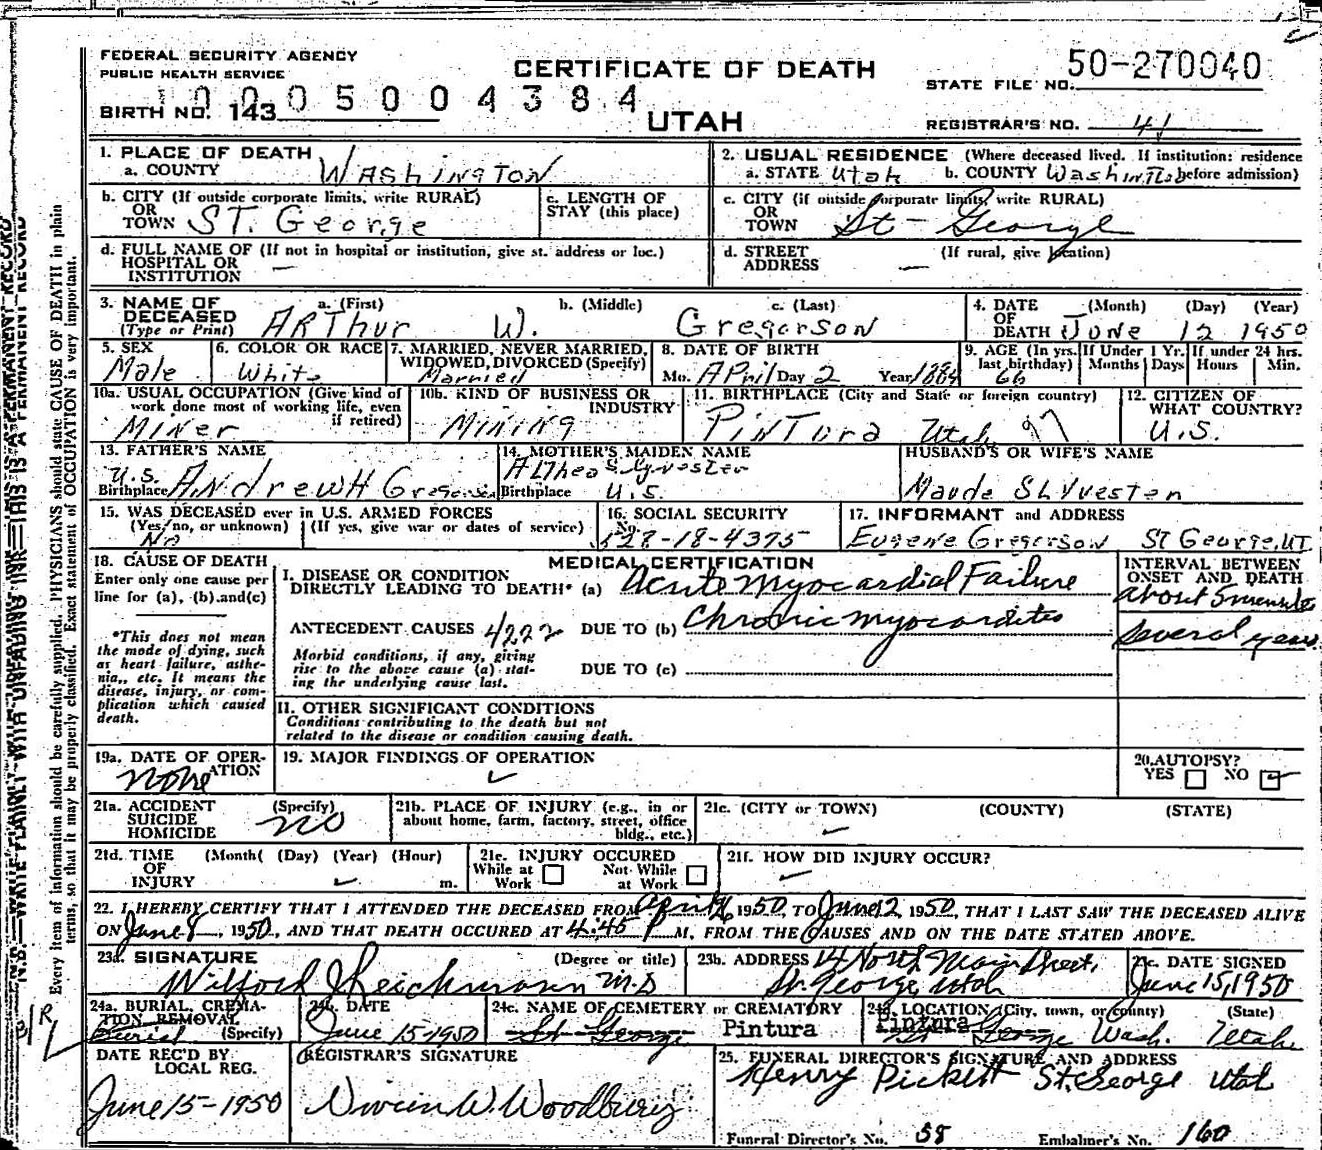 FEDERAL SECURITY AGENCY
PUBLIC HEALTH SERVICE
CERTIFICATE OF DEATH
UTAH
STATE FILE NO. 50-270040
1000500 4384
BIRTH NO. 143
REGISTRAR'S NO. 41
1. PLACE OF DEATH
a. COUNTY WAShiNgTON
2. USUAL RESIDENCE (Where deceased lived. If institution: residence before admission)
a. STATE Utah b. COUNTY
b. CITY (If outside corporate limits, write RURAL)
OR
TOWN ST. George
c. LENGTH OF
STAY (this place)
c. CITY (if outside corporate limits, write RURAL)
OR
TOWN St-George
d. FULL NAME OF (If not in hospital or institution, give st. address or loc.)
HOSPITAL OR
INSTITUTION —
d. STREET (If rural, give location)
ADDRESS —
3. NAME OF DECEASED
(Type or Print)
a. (First) ARThur b. (Middle) W. c. (Last) Gregerson
4. DATE OF DEATH (Month) (Day) (Year)
JUNE 12 1950
5. SEX
Male
6. COLOR OR RACE
White
7. MARRIED, NEVER MARRIED,
WIDOWED, DIVORCED (Specify)
Married
8. DATE OF BIRTH
Mo. April Day 2 Year 1884
9. AGE (In yrs. last birthday) 66
If Under 1 Yr. Months Days
If under 24 hrs. Hours Min.
10a. USUAL OCCUPATION (Give kind of
work done most of working life, even
if retired)
MINer
10b. KIND OF BUSINESS OR
INDUSTRY
MiNiNg
11. BIRTHPLACE (City and State or foreign country)
PiNTura Utah
12. CITIZEN OF
WHAT COUNTRY?
U.S.
13. FATHER'S NAME
U.S.
Birthplace ANdrew H Gregerson
14. MOTHER'S MAIDEN NAME
Althea Sylvester
Birthplace U.S.
HUSBAND'S OR WIFE'S NAME
Maude SLYvesten
15. WAS DECEASED ever in U.S. ARMED FORCES
(Yes/no, or unknown) (If yes, give war or dates of service)
No
16. SOCIAL SECURITY
No. 528-18-4375
17. INFORMANT and ADDRESS
Eugene Gregerson ST George, UT
18. CAUSE OF DEATH
Enter only one cause per
line for (a), (b) and (c)
*This does not mean
the mode of dying, such
as heart failure, asthe-
nia, etc. It means the
disease, injury, or com-
plication which caused
death.
MEDICAL CERTIFICATION
I. DISEASE OR CONDITION
DIRECTLY LEADING TO DEATH* (a) Acute Myocardial Failure
ANTECEDENT CAUSES 4222 DUE TO (b) Chronic myocarditis
Morbid conditions, if any, giving
rise to the above cause (a) stat-
ing the underlying cause last.
DUE TO (c)
INTERVAL BETWEEN
ONSET AND DEATH
about 5 minutes
several years
II. OTHER SIGNIFICANT CONDITIONS
Conditions contributing to the death but not
related to the disease or condition causing death.
19a. DATE OF OPER-
ATION
none
19. MAJOR FINDINGS OF OPERATION
20. AUTOPSY?
YES NO
21a. ACCIDENT (Specify)
SUICIDE
HOMICIDE
no
21b. PLACE OF INJURY (e.g., in or
about home, farm, factory, street, office
bldg., etc.)
21c. (CITY or TOWN) (COUNTY) (STATE)
21d. TIME (Month( (Day) (Year) (Hour)
OF
INJURY m.
21e. INJURY OCCURED
While at Work Not While at Work
21f. HOW DID INJURY OCCUR?
22. I HEREBY CERTIFY THAT I ATTENDED THE DECEASED FROM April 1950, TO June 12, 1950, THAT I LAST SAW THE DECEASED ALIVE
ON June 8, 1950, AND THAT DEATH OCCURED AT 4:45 P M, FROM THE CAUSES AND ON THE DATE STATED ABOVE.
23a. SIGNATURE (Degree or title)
Wilford J Reichmann M.D
23b. ADDRESS 14 North Main Street,
St. George, Utah
23c. DATE SIGNED
June 15, 1950
24a. BURIAL, CREMA-
TION REMOVAL
Burial (Specify)
24b. DATE
June 15-1950
24c. NAME OF CEMETERY or CREMATORY
St George Pintura
24d. LOCATION (City, town, or county) (State)
Pintura
St George Wash. Utah
DATE REC'D BY
LOCAL REG.
June 15-1950
REGISTRAR'S SIGNATURE
Vivien W. Woodbury
25. FUNERAL DIRECTOR'S SIGNATURE AND ADDRESS
Henry Pickett St. George Utah
Funeral Director's No. 58 Embalmer's No. 160
Every item of information should be carefully supplied. PHYSICIANS should state CAUSE OF DEATH in plain
terms, so that it may be properly classified. Exact statement of OCCUPATION is very important.
N.B.—WRITE PLAINLY WITH UNFADING INK—THIS IS A PERMANENT RECORD